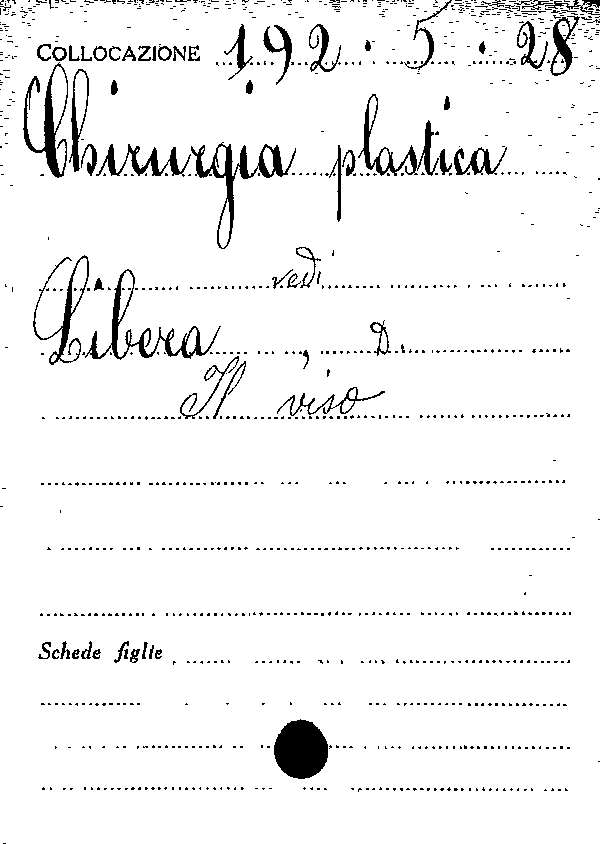 COLLOCAZIONE 192.5.28
Chirurgia plastica
vedi
Libera, D.
Il viso
Schede figlie